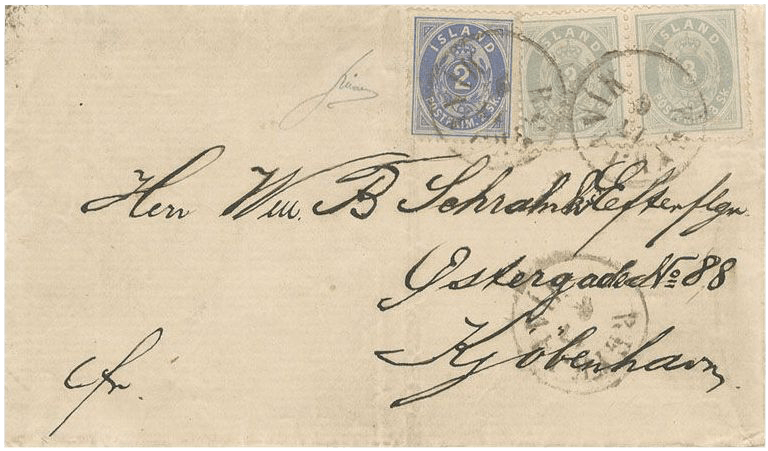 ÍSLAND
2
POSTFRIM. 2 SK.
ÍSLAND
ÍSLAND
Sk.
Herr Wm. B Schramk Efterflgr.
Østergade No 88
Kjöbenhavn
fr.